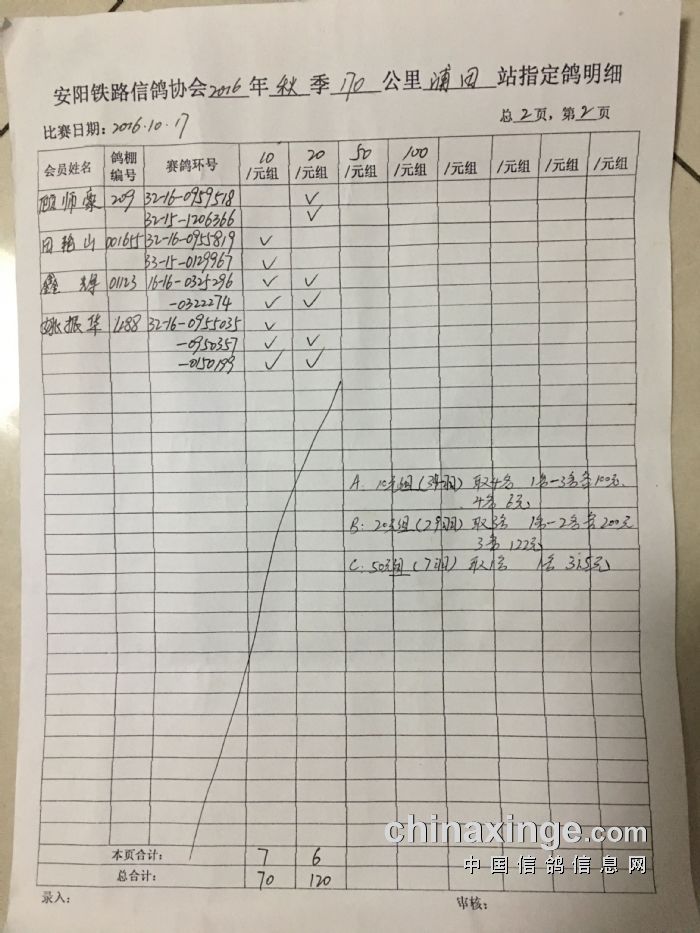 安阳铁路信鸽协会2016年秋季170公里浦田站指定鸽明细
比赛日期：2016.10.17 总2页，第2页
会员姓名 鸽棚编号 赛鸽环号 10/元组 20/元组 50/元组 100/元组 /元组 /元组 /元组 /元组
顾师豪 209 32-16-0959518 ✓
32-15-1206366 ✓
田艳山 001655 32-16-0955819 ✓
33-15-0129967 ✓
鑫辉 01123 16-16-0325296 ✓ ✓
-0322274 ✓ ✓
姚振华 1288 32-16-0955035 ✓
-0950357 ✓ ✓
-0150199 ✓ ✓
A：10元组（34羽）取4名 1名-3名各100元、
4名 6元
B：20元组（29羽）取3名 1名-2名各200元
3名 122元
C：50元组（7羽）取1名 1名 315元
本页合计： 7 6
总合计： 70 120
录入： 审核：
chinaxinge.com
中国信鸽信息网